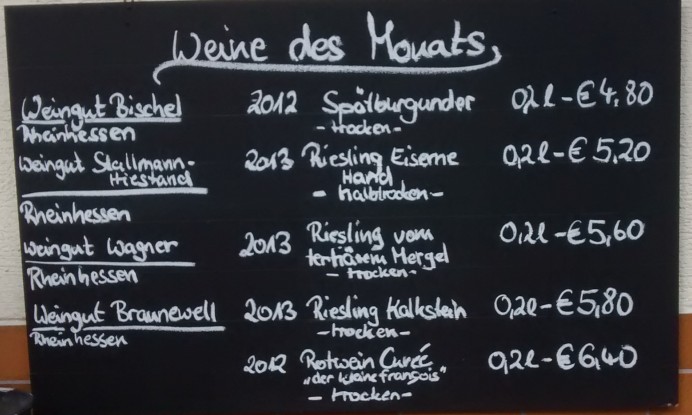 Weine des Monats
Weingut Bischel 2012 Spätburgunder 0,2l-€4,80
Rheinhessen -trocken-
Weingut Stallmann- 2013 Riesling Eiserne 0,2l-€5,20
Hiestand Hand
-halbtrocken-
Rheinhessen
Weingut Wagner 2013 Riesling vom 0,2l-€5,60
tertiärem Mergel
Rheinhessen -trocken-
Weingut Braunewell 2013 Riesling Kalkstein 0,2l-€5,80
Rheinhessen -trocken-
2012 Rotwein Cuveé 0,2l-€6,40
"der kleine françois"
-trocken-